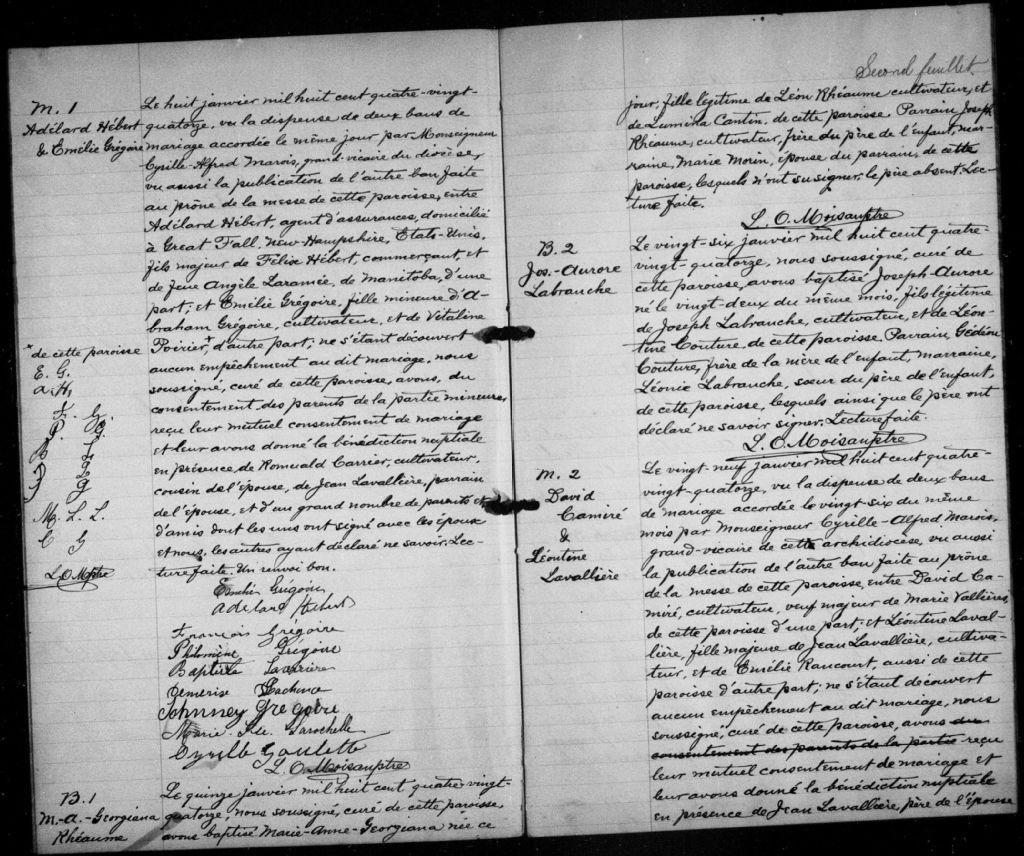 M. 1
Adélard Hébert
& Emélie Grégoire
Le huit janvier mil huit cent quatre-vingt-
quatorze, vu la dispense de deux bans de
mariage accordée le même jour par Monseigneur
Cyrille-Alfred Marois, grand-vicaire du diocèse,
vu aussi la publication de l'autre ban faite
au prône de la messe de cette paroisse, entre
Adélard Hébert, agent d'assurances, domicilié
à Great Fall, New-Hampshire, États-Unis,
fils majeur de Félix Hébert, commerçant, et
de feue Angèle Laramée, de Manitoba, d'une
part; et Emélie Grégoire, fille mineure d'A-
braham Grégoire, cultivateur, et de Vitaline
Poirier,* d'autre part; ne s'étant découvert
aucun empêchement au dit mariage, nous
soussigné, curé de cette paroisse, avons, du
consentement des parents de la partie mineure,
reçu leur mutuel consentement de mariage
et leur avons donné la bénédiction nuptiale
en présence de Romuald Carrier, cultivateur,
cousin de l'épouse, de Jean Lavallière, parrain
de l'épouse, et d'un grand nombre de parents et
d'amis dont les uns ont signé avec les époux
et nous, les autres ayant déclaré ne savoir. Lec-
ture faite. Un renvoi bon.
* de cette paroisse
E. G.
A. H.
F. G.
P. G.
B L
J G
M. L. L.
C G
L.O.M ptre
Emélie Grégoire
Adelard Hebert
François Grégoire
Philomène Grégoire
Baptiste
Johnney Gregoire
Marie Larochelle
Cyrille Goulette
L. O. Moisan ptre
B. 1
M.-A.-Georgiana
Rhéaume
Le quinze janvier mil huit cent quatre-vingt-
quatorze, nous soussigné, curé de cette paroisse,
avons baptisé Marie-Anne-Georgiana née ce
Second feuillet.
jour, fille légitime de Léon Rhéaume, cultivateur, et
de Lumina Cantin, de cette paroisse. Parrain, Joseph
Rhéaume, cultivateur, frère du père de l'enfant, mar-
raine, Marie Morin, épouse du parrain, de cette
paroisse, lesquels n'ont su signer, le père absent. Lec-
ture faite.
L. O. Moisan ptre
B. 2
Jos.-Aurore
Labranche
Le vingt-six janvier mil huit cent quatre-
vingt-quatorze, nous soussigné, curé de
cette paroisse, avons baptisé Joseph-Aurore
né le vingt-deux du même mois, fils légitime
de Joseph Labranche, cultivateur, et de Léon-
tine Couture, de cette paroisse. Parrain, Gédéon
Couture, frère de la mère de l'enfant, marraine,
Léonie Labranche, sœur du père de l'enfant,
de cette paroisse, lesquels ainsi que le père ont
déclaré ne savoir signer. Lecture faite.
L. O. Moisan ptre
M. 2
David
Camiré
&
Léontine
Lavallière
Le vingt neuf janvier mil huit cent quatre-
vingt-quatorze, vu la dispense de deux bans
de mariage accordée le vingt-six du même
mois par Monseigneur Cyrille-Alfred Marois,
grand-vicaire de cette archidiocèse, vu aussi
la publication de l'autre ban faite au prône
de la messe de cette paroisse, entre David Ca-
miré, cultivateur, veuf majeur de Marie Vallières,
de cette paroisse d'une part; et Léontine Laval-
lière, fille majeure de Jean Lavallière, cultiva-
teur, et de Emélie Rancourt, aussi de cette
paroisse d'autre part; ne s'étant découvert
aucun empêchement au dit mariage, nous
soussigné, curé de cette paroisse, avons du
consentement des parents de la partie reçu
leur mutuel consentement de mariage et
leur avons donné la bénédiction nuptiale
en présence de Jean Lavallière, père de l'épouse